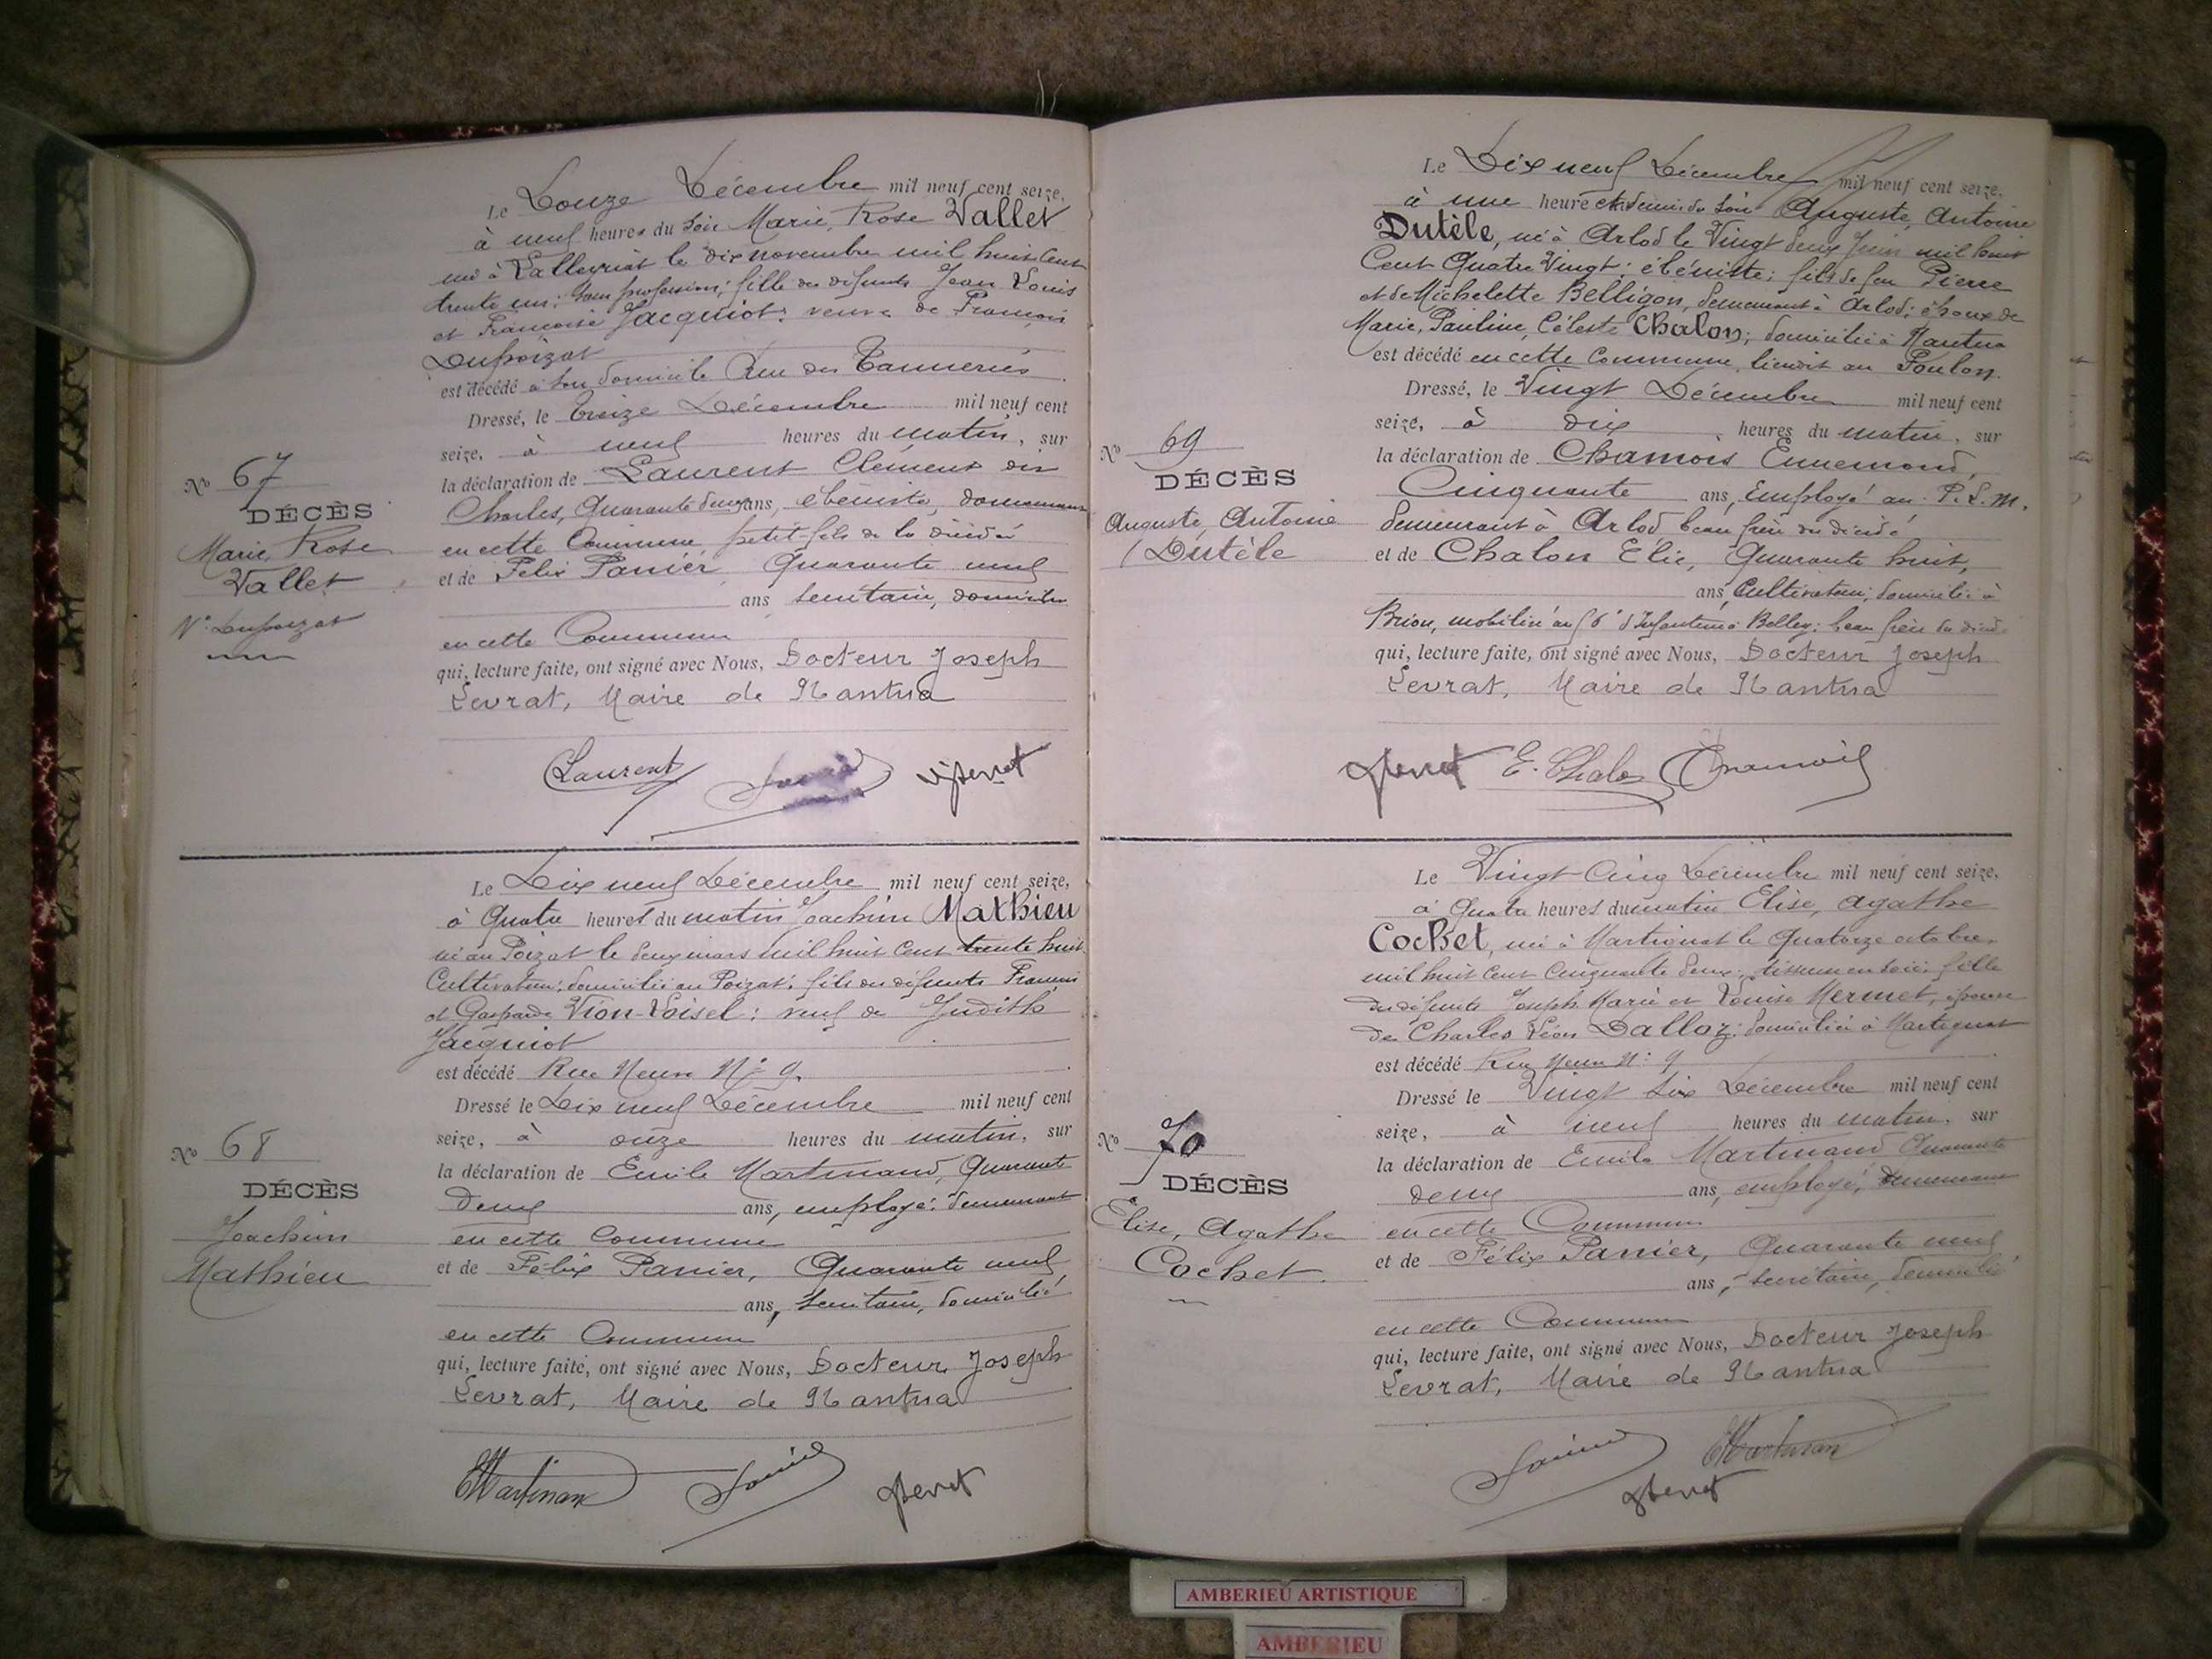 Le Douze Décembre mil neuf cent seize,
à neuf heures du soir Marie, Rose Vallet
née à Lalleyriat le dix novembre mil huit Cent
trente un; sans profession; fille des défunts Jean Louis
et Françoise Jacquiot; veuve de François
Dupoizat
est décédé à son domicile Rue des Tanneries
Dressé, le Treize Décembre mil neuf cent
seize, à neuf heures du matin, sur
la déclaration de Laurent Clément dit
Charles, Quarante deux ans, ébéniste, demeurant
en cette Commune petit-fils de la décédée
et de Félix Panier, Quarante neuf
ans secrétaire, domicilié
en cette Commune
qui, lecture faite, ont signé avec Nous, Docteur Joseph
Levrat, Maire de Nantua
No 67
DÉCÈS
Marie Rose
Vallet
Ve Dupoizat
Laurent
Le Dix neuf Décembre mil neuf cent seize,
à Quatre heures du matin Joachim Mathieu
né au Poizat le deux mars mil huit Cent trente huit
Cultivateur; domicilié au Poizat; fils des défunts François
et Gasparde Vion-Loisel; veuf de Judith
Jacquiot
est décédé Rue Neuve No 9.
Dressé le Dix neuf Décembre mil neuf cent
seize, à onze heures du matin, sur
la déclaration de Emile Martinand, Quarante
deux ans, employé; demeurant
en cette Commune
et de Félix Panier, Quarante neuf
ans, secrétaire, domicilié
en cette Commune
qui, lecture faite, ont signé avec Nous, Docteur Joseph
Levrat, Maire de Nantua
No 68
DÉCÈS
Joachim
Mathieu
EMartinand
Le Dix neuf Décembre mil neuf cent seize,
à une heure et demie du soir Auguste, Antoine
Dutèle, né à Arlod le Vingt deux Juin mil huit
Cent Quatre Vingt; ébéniste; fils de feu Pierre
et de Michelette Belligon, demeurant à Arlod; époux de
Marie, Pauline, Céleste Chalon; domicilié à Nantua
est décédé en cette Commune, lieudit au Poulon.
Dressé, le Vingt Décembre mil neuf cent
seize, à dix heures du matin, sur
la déclaration de Chamois Ennemond,
Cinquante ans, Employé au P.L.M.
demeurant à Arlod beau frère du décédé
et de Chalon Elie, Quarante huit,
ans, Cultivateur; domicilié à
Brion, mobilisé au d'Infanterie à Belley; beau frère du décédé
qui, lecture faite, ont signé avec Nous, Docteur Joseph
Levrat, Maire de Nantua
No 69
DÉCÈS
Auguste, Antoine
Dutèle
E. Chalon Chamois
Le Vingt-Cinq Décembre mil neuf cent seize,
à Quatre heures du matin Elise, Agathe
Cochet, née à Martignat le Quatorze octobre
mil huit Cent Cinquante deux; tisseuse en soie; fille
des défunts Joseph Marie et Louise Mermet, épouse
de Charles Léon Dalloz; domiciliée à Martignat
est décédé Rue Neuve No 9
Dressé le Vingt Six Décembre mil neuf cent
seize, à neuf heures du matin, sur
la déclaration de Emile Martinand Quarante
deux ans, employé, demeurant
en cette Commune
et de Félix Panier, Quarante neuf
ans, secrétaire, domicilié
en cette Commune
qui, lecture faite, ont signé avec Nous, Docteur Joseph
Levrat, Maire de Nantua
No 70
DÉCÈS
Elise, Agathe
Cochet
EMartinand
AMBERIEU ARTISTIQUE
AMBERIEU